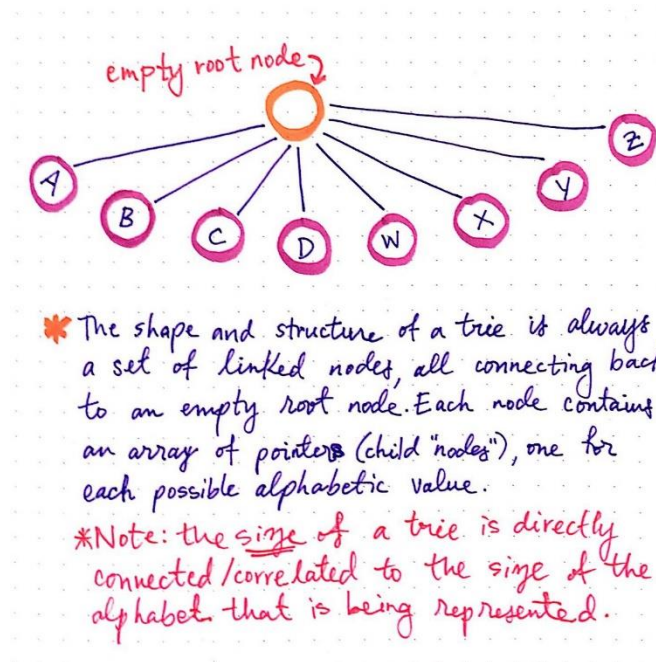 empty root node
A
B
C
D
W
X
Y
Z
* The shape and structure of a trie is always
a set of linked nodes, all connecting back
to an empty root node. Each node contains
an array of pointers (child "nodes"), one for
each possible alphabetic value.
*Note: the size of a trie is directly
connected/correlated to the size of the
alphabet that is being represented.